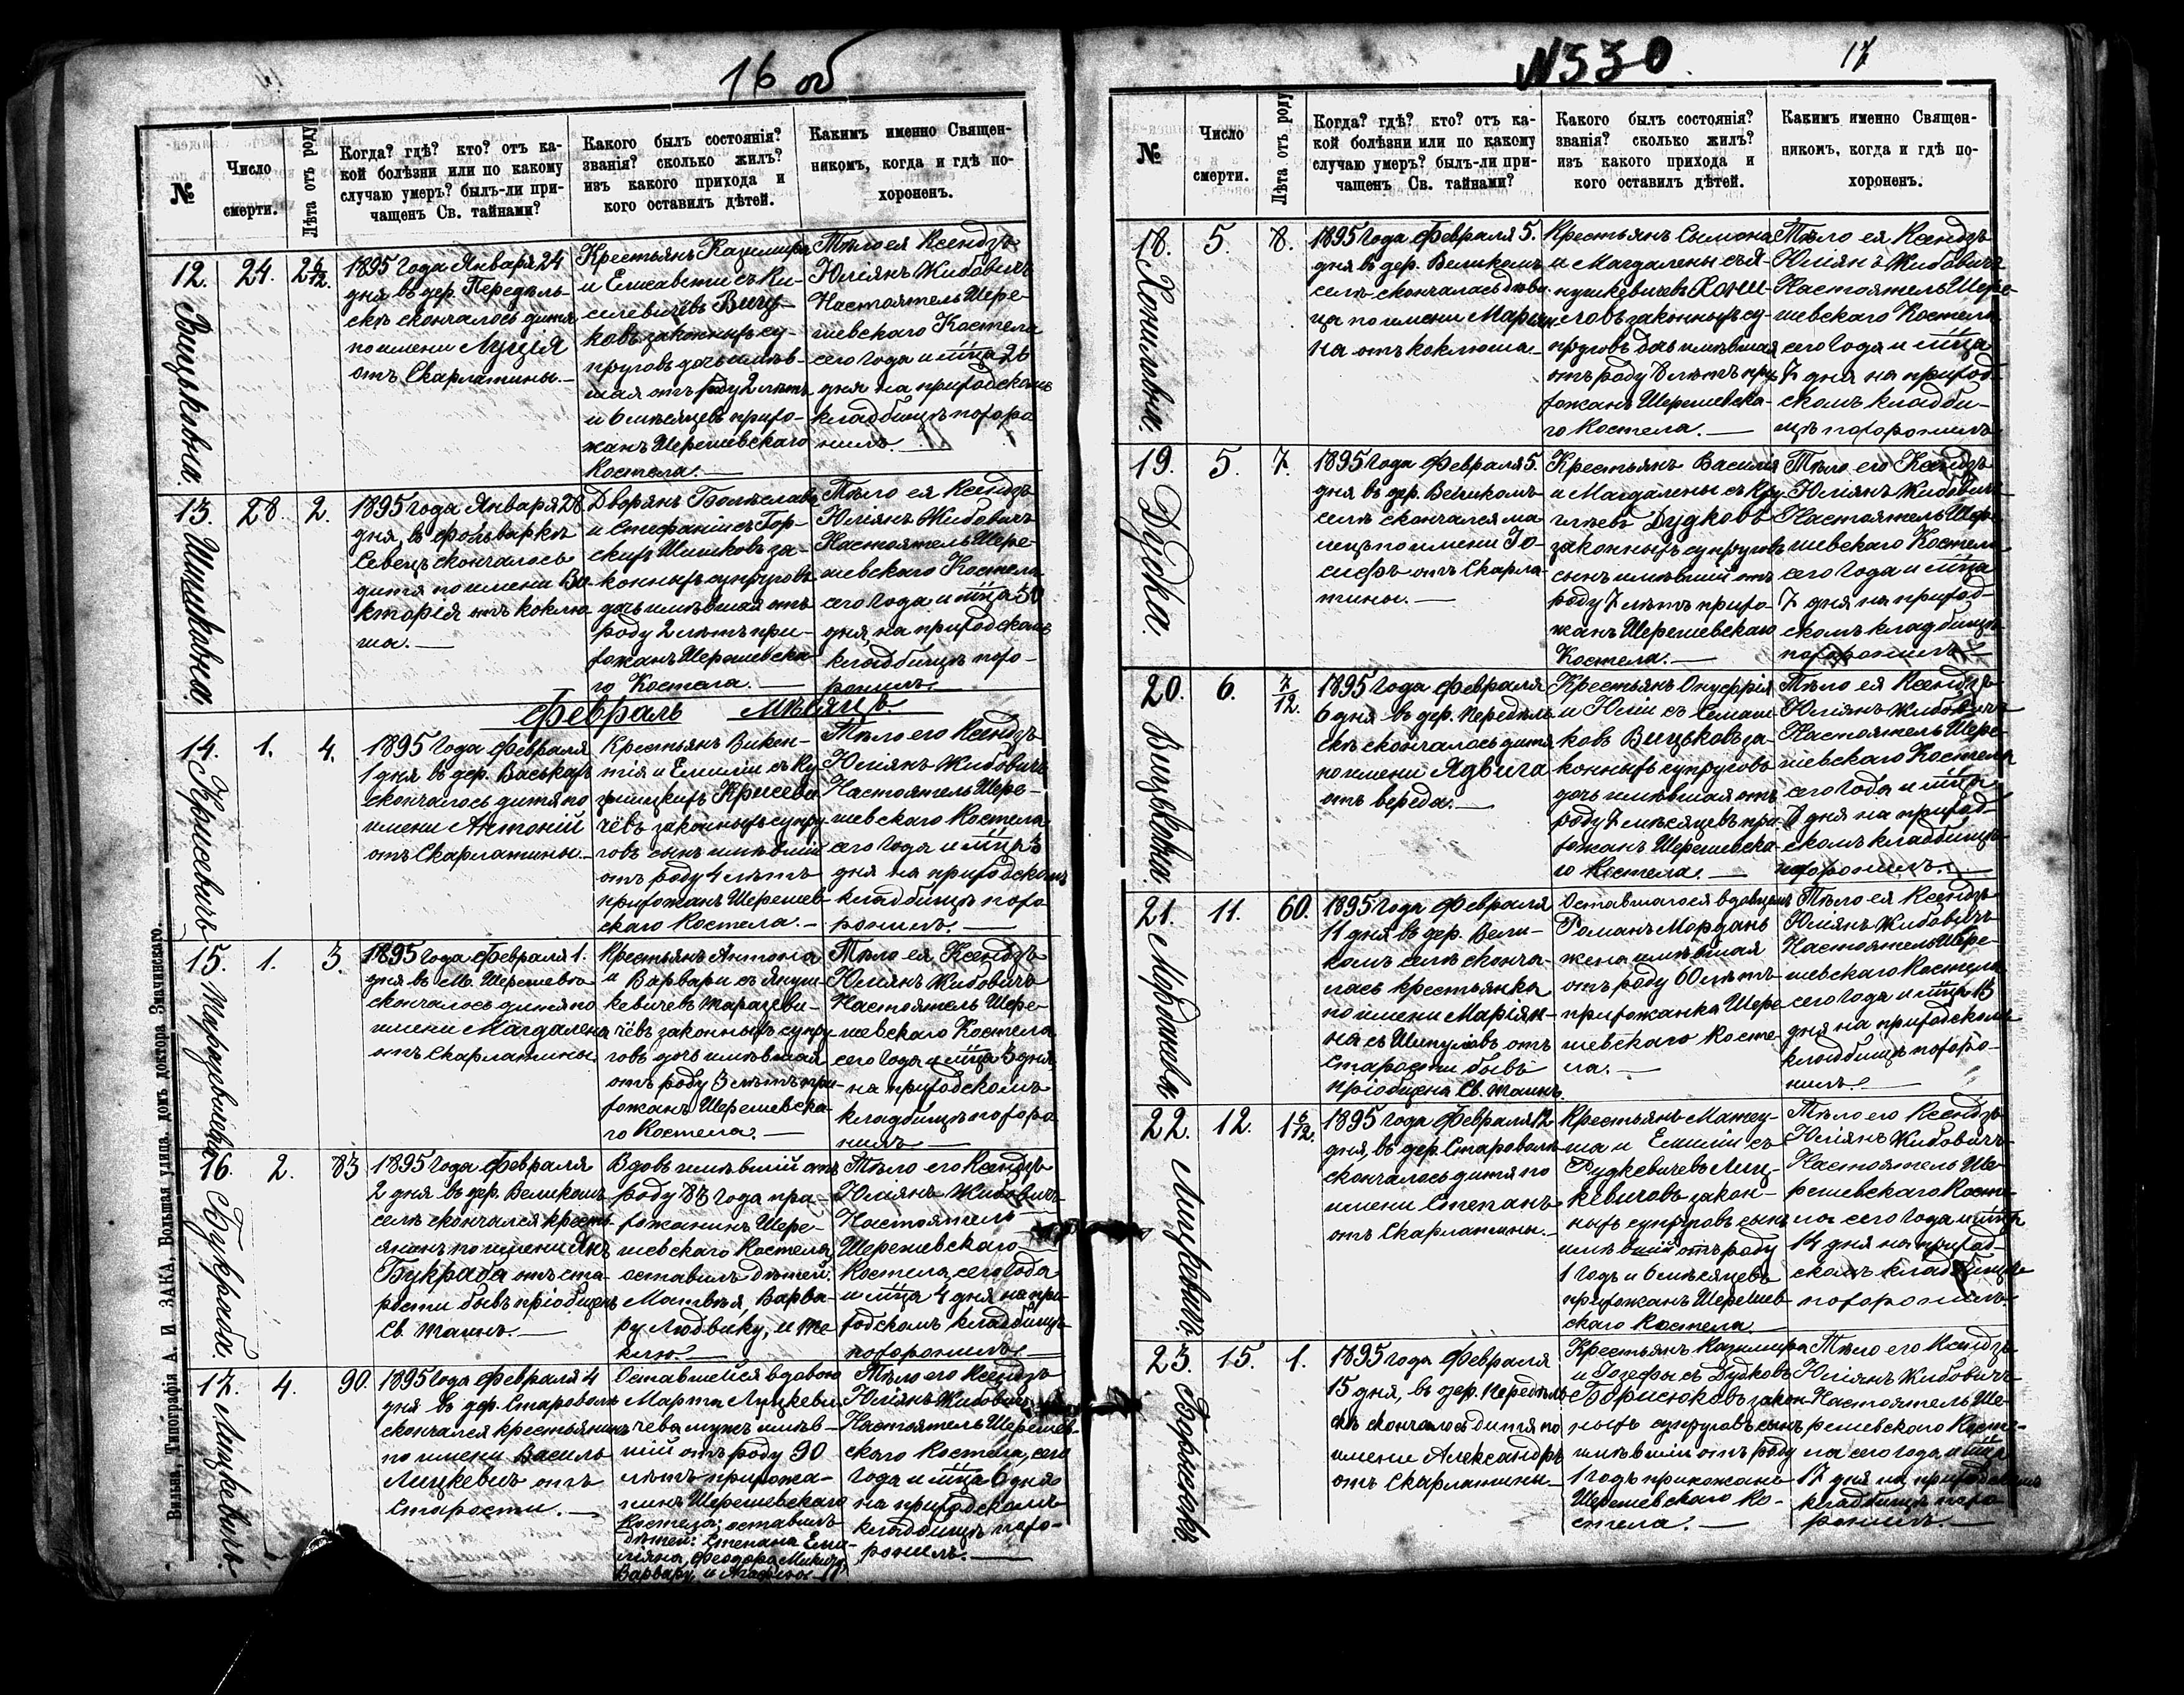 16 об
№
Число
смерти.
Лѣта отъ роду
Когда? гдѣ? кто? отъ ка-
кой болѣзни или по какому
случаю умеръ? былъ-ли при-
чащенъ Св. тайнами?
Какого былъ состоянія?
званія? сколько жилъ?
изъ какого прихода и
кого оставилъ дѣтей.
Какимъ именно Священ-
никомъ, когда и гдѣ по-
хороненъ.
12.
Вицьковна.
24.
2 6/12.
1895 года Января 24
дня въ дер. Передѣль-
скѣ скончалось дитя
по имени Луція
отъ Скарлатины.—
Крестьянъ Казимира
и Елисаветы съ Ки-
силевичёвъ Виць-
ковъ законныхъ су-
пруговъ дочь имѣв-
шая отъ роду 2 лѣтъ
и 6 мѣсяцевъ прихо-
жанъ Шерешевскаго
Костела.—
Тѣло ея Ксендзъ
Юліянъ Жибовичъ
Настоятель Шере-
шевскаго Костела
сего года и мца 26
дня на приходскомъ
кладбищѣ похоро
нилъ.—
13.
Шишковна.
28.
2.
1895 года Января 28
дня, въ фольваркѣ
Севецъ скончалось
дитя по имени Ви-
кторія отъ коклю-
ша.—
Дворянъ Болеслава
и Стефаніи съ Гор-
скихъ Шишковъ за-
конныхъ супруговъ
дочь имѣвшая отъ
роду 2 лѣтъ при-
хожанъ Шерешевска-
го Костела.—
Тѣло ея Ксендзъ
Юліянъ Жибовичъ
Настоятель Шере-
шевскаго Костела
сего года и мца 30
дня на приходскомъ
кладбищѣ похо-
ронилъ.—
Февраль мѣсяцъ.
14.
Крисевичъ
1.
4.
1895 года Февраля
1 дня въ дер. Васькахъ
скончалось дитя по
имени Антоній
отъ Скарлатины.—
Крестьянъ Викен-
тія и Емиліи съ Ку
Крисеви
чёвъ законныхъ супру-
говъ сынъ имѣвшій
отъ роду 4 лѣтъ
прихожанъ Шерешев-
скаго Костела.—
Тѣло его Ксендзъ
Юліянъ Жибовичъ
Настоятель Шере-
шевскаго Костела
сего года и мца 3
дня на приходскомъ
кладбищѣ похо-
ронилъ.—
15.
Тарацевичева
1.
3.
1895 года Февраля 1.
дня въ М. Шерешево
скончалось дитя по
имени Магдалена
отъ Скарлатины.
Крестьянъ Антона
и Варвары съ Януш-
кевичевъ Тарацеви-
чёвъ законныхъ супру-
говъ дочь имѣвшая
отъ роду 3 лѣтъ при-
хожанъ Шерешевска-
го Костела.—
Тѣло ея Ксендзъ
Юліянъ Жибовичъ
Настоятель Шере-
шевскаго Костела
сего года и мца 3 дня
на приходскомъ
кладбищѣ похоро
нилъ—
16.
Букраба.
2.
83
1895 года Февраля
2 дня въ дер. Великомъ
селѣ скончался кресть-
янинъ по имени Янъ
Букраба отъ ста-
рости бывъ пріобщенъ
Св. Таинъ.—
Вдовъ имѣвшій отъ
роду 83 года при-
хожанинъ Шере-
шевскаго Костела,
оставилъ дѣтей:
Матвѣя, Варва-
ру Людвику, и Те
клю.—
Тѣло его Ксендзъ
Юліянъ Жибовичъ
Настоятель
Шерешевскаго
Костела, сего года
и мца 4 дня на при-
ходскомъ кладбищѣ
похоронилъ.—
17.
Лицкевичъ.
4.
90.
1895 года Февраля 4
дня въ дер. Староволѣ
скончался крестьянинъ
по имени Василь
Лицкевичъ отъ
Старости.—
Оставшейся вдовою
Марты Лицкеви
чева мужъ имѣв-
шій отъ роду 90
лѣтъ прихожа-
нинъ Шерешевскаго
Костела; оставилъ
дѣтей: Степана Еми-
ліяна, Феодора,
Варвару и
Тѣло его Ксендзъ
Юліянъ Жибовичъ
Настоятель Шерешев-
скаго Костела, сего
года и мца 6 дня
на приходскомъ
кладбищѣ похо-
ронилъ.—
Вильна, Типографія А. И. ЗАКА, Большая улица, домъ доктора Значинскаго.
N330
17
№
Число
смерти.
Лѣта отъ роду
Когда? гдѣ? кто? отъ ка-
кой болѣзни или по какому
случаю умеръ? былъ-ли при-
чащенъ Св. тайнами?
Какого былъ состоянія?
званія? сколько жилъ?
изъ какого прихода и
кого оставилъ дѣтей.
Какимъ именно Священ-
никомъ, когда и гдѣ по-
хороненъ.
18.
5.
8.
1895 года Февраля 5.
дня въ дер. Великомъ
селѣ скончалась дѣви-
ца по имени Марьян-
на отъ коклюша.—
Крестьянъ Сымона
и Магдалены съ Я-
нушкевичевъ
законныхъ су-
пруговъ дочь имѣвшая
отъ роду 8 лѣтъ при-
хожанъ Шерешевска-
го Костела.—
Тѣло ея Ксендзъ
Юліянъ Жибовичъ
Настоятель Шере-
шевскаго Костела
сего года и мца
7 дня на приход-
скомъ кладби-
щѣ похоронилъ
19.
Дудка.
5.
7.
1895 года Февраля 5.
дня въ дер. Великомъ
селѣ скончался ма
лецъ по имени Іо-
сифъ отъ Скарла-
тины.—
Крестьянъ Василія
и Магдалены съ
Дудковъ
законныхъ супруговъ
сынъ имѣвшій отъ
роду 7 лѣтъ прихо-
жанъ Шерешевскаго
Костела.—
Тѣло его Ксендзъ
Юліянъ Жибовичъ
Настоятель Шере-
шевскаго Костела
сего года и мца
7 дня на приход-
скомъ кладбищѣ
похоронилъ—
20.
Вицьковна.
6.
7/12.
1895 года Февраля
6 дня въ дер. Передѣль-
скѣ скончалось дитя
по имени Ядвига
отъ вереда.—
Крестьянъ Онуфрія
и Юліи съ Семаш-
ковъ Вицьковъ за-
конныхъ супруговъ
дочь имѣвшая отъ
роду 7 мѣсяцевъ при-
хожанъ Шерешевска-
го Костела.—
Тѣло ея Ксендзъ
Юліянъ Жибовичъ
Настоятель Шере-
шевскаго Костела
сего года и мца
8 дня на приход-
скомъ кладбищѣ
похоронилъ.—
21.
Морданева
11.
60.
1895 года Февраля
11 дня въ дер. Вели-
комъ селѣ сконча-
лась крестьянка
по имени Маріян-
на съ отъ
Старости бывъ
пріобщена Св. Таинъ.
Оставшагося вдовцемъ
Романъ Морданъ
жена имѣвшая
отъ роду 60 лѣтъ
прихожанка Шере
шевскаго Косте
ла.—
Тѣло ея Ксендзъ
Юліянъ Жибовичъ
Настоятель Шере-
шевскаго Костела
сего года и мца 13
дня на приходскомъ
кладбищѣ похоро-
нилъ.—
22.
Лицкевичъ.
12.
1 6/12.
1895 года Февраля 12
дня, въ дер. Староволѣ
скончалось дитя по
имени Степанъ
отъ Скарлатины.—
Крестьянъ Матеу-
ша и Емиліи съ
Рудкевичевъ Лиц-
кевичовъ закон-
ныхъ супруговъ сынъ
имѣвшій отъ роду
1 годъ и 6 мѣсяцевъ
прихожанъ Шерешев-
скаго Костела.
Тѣло его Ксендзъ
Юліянъ Жибовичъ
Настоятель Ше-
решевскаго Косте-
ла сего года и мца
14 дня на приход-
скомъ кладбищѣ
похоронилъ.
23.
Борисюкъ.
15.
1.
1895 года Февраля
15 дня, въ дер. Передѣль-
скѣ скончалось дитя по
имени Александръ
отъ Скарлатины—
Крестьянъ Казимира
и Іозефы съ Дудковъ
Борисюковъ закон-
ныхъ супруговъ сынъ
имѣвшій отъ роду
1 годъ прихожанъ
Шерешевскаго Ко-
стела.—
Тѣло его Ксендзъ
Юліянъ Жибовичъ
Настоятель Ше-
решевскаго Косте-
ла сего года и мца
17 дня на приходскомъ
кладбищѣ похо-
ронилъ.—